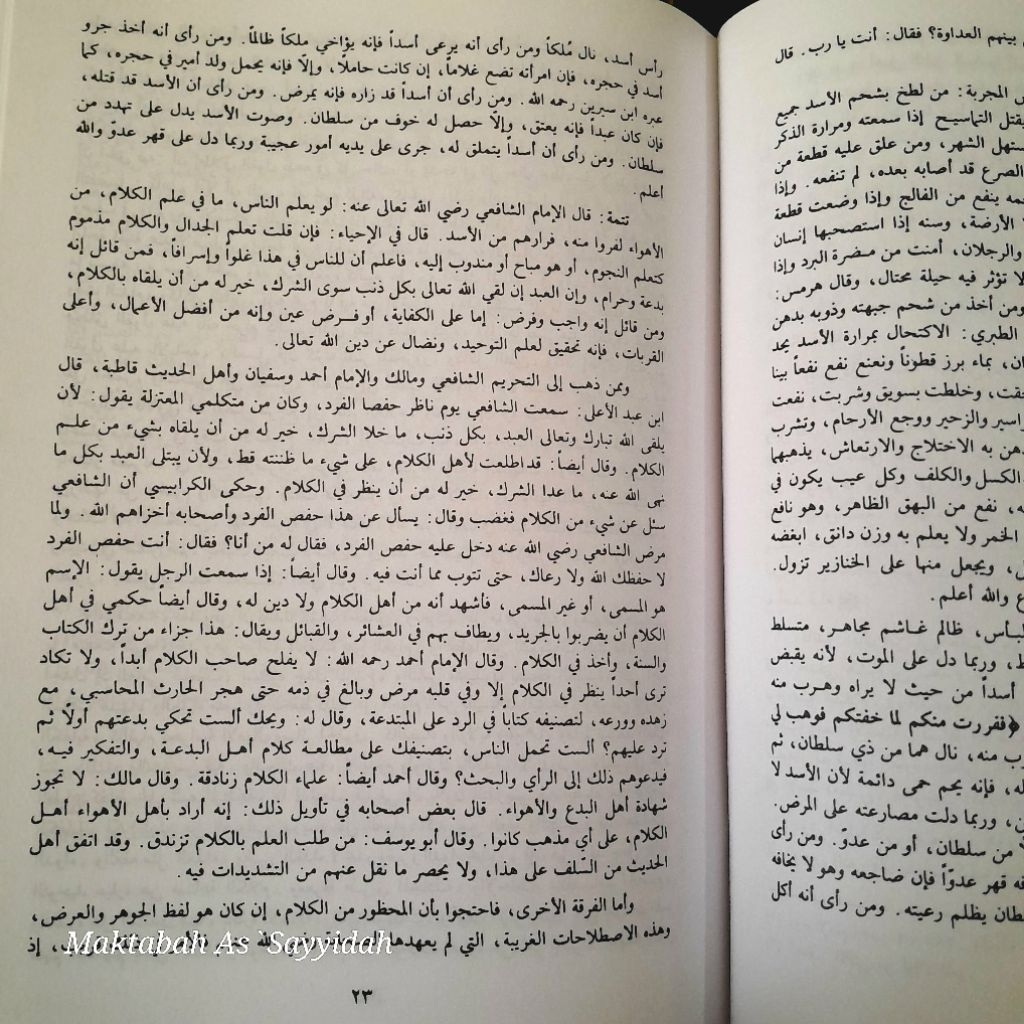 بينهم العداوة؟ فقال: أنت يا رب. قال
المجربة: من لطخ بشحم الأسد جميع
يقتل التماسيح إذا سمعته ومرارة الذكر
ستهل الشهر، ومن علق عليه قطعة من
الصرع قد أصابه بعده، لم تنفعه. وإذا
حمه ينفع من الفالج وإذا وضعت قطعة
الأرضة، وسنه إذا استصحبها إنسان
والرجلان، أمنت من مضرة البرد وإذا
لا تؤثر فيه حيلة محتال، وقال هرمس:
ومن أخذ من شحم جبهته وذوبه بدهن
الطبري: الاكتحال بمرارة الأسد يحد
ان، بماء برز قطوناً ونعنع نفع نفعاً بينا
حقت، وخلطت بسويق وشربت، نفعت
راسير والزحير ووجع الأرحام، وتشرب
دهن به الاختلاج والارتعاش، يذهبهما
الكسل والكلف وكل عيب يكون في
ه، نفع من البهق الظاهر، وهو نافع
الخمر ولا يعلم به وزن دانق، ابغضه
ل، ويجعل منها على الخنازير تزول.
ع والله أعلم.
لبأس، ظالم غاشم مجاهر، متسلط
ط، وربما دل على الموت، لأنه يقبض
أسداً من حيث لا يراه وهرب منه
﴿ففررت منكم لما خفتكم فوهب لي
رب منه، نال هما من ذي سلطان، ثم
له، فإنه يحم حمى دائمة لأن الأسد لا
ن، وربما دلت مصارعته على المرض.
لاً من سلطان، أو من عدوّ. ومن رأى
قه قهر عدوّاً فإن ضاجعه وهو لا يخافه
لطان يظلم رعيته. ومن رأى أنه أكل
رأس أسد، نال مُلكاً ومن رأى أنه يرعى أسداً فإنه يؤاخي ملكاً ظالماً. ومن رأى أنه أخذ جرو
أسد في حجره، فإن امرأته تضع غلاماً، إن كانت حاملاً، وإلاّ فإنه يحمل ولد أمير في حجره، كما
عبره ابن سيرين رحمه الله. ومن رأى أن أسداً قد زاره فإنه يمرض. ومن رأى أن الأسد قد قتله،
فإن كان عبداً فإنه يعتق، وإلاّ حصل له خوف من سلطان. وصوت الأسد يدل على تهدد من
سلطان. ومن رأى أن أسداً يتملق له، جرى على يديه أمور عجيبة وربما دل على قهر عدوّ والله
أعلم.
تتمة: قال الإمام الشافعي رضي الله تعالى عنه: لو يعلم الناس، ما في علم الكلام، من
الأهواء لفروا منه، فرارهم من الأسد. قال في الإحياء: فإن قلت تعلم الجدال والكلام مذموم
كتعلم النجوم، أو هو مباح أو مندوب إليه، فاعلم أن للناس في هذا غلواً وإسرافاً، فمن قائل إنه
بدعة وحرام، وإن العبد إن لقي الله تعالى بكل ذنب سوى الشرك، خير له من أن يلقاه بالكلام،
ومن قائل إنه واجب وفرض: إما على الكفاية، أو فرض عين وإنه من أفضل الأعمال، وأعلى
القربات، فإنه تحقيق لعلم التوحيد، ونضال عن دين الله تعالى.
وممن ذهب إلى التحريم الشافعي ومالك والإمام أحمد وسفيان وأهل الحديث قاطبة، قال
ابن عبد الأعلى: سمعت الشافعي يوم ناظر حفصا الفرد، وكان من متكلمي المعتزلة يقول: لأن
يلقى الله تبارك وتعالى العبد، بكل ذنب، ما خلا الشرك، خير له من أن يلقاه بشيء من علم
الكلام. وقال أيضاً: قد اطلعت لأهل الكلام، على شيء ما ظننته قط، ولأن يبتلى العبد بكل ما
نهى الله عنه، ما عدا الشرك، خير له من أن ينظر في الكلام. وحكى الكرابيسي أن الشافعي
سئل عن شيء من الكلام فغضب وقال: يسأل عن هذا حفص الفرد وأصحابه أخزاهم الله. ولما
مرض الشافعي رضي الله عنه دخل عليه حفص الفرد، فقال له من أنا؟ فقال: أنت حفص الفرد
لا حفظك الله ولا رعاك، حتى تتوب مما أنت فيه. وقال أيضاً: إذا سمعت الرجل يقول: الإسم
هو المسمى، أو غير المسمى، فأشهد أنه من أهل الكلام ولا دين له، وقال أيضاً حكمي في أهل
الكلام أن يضربوا بالجريد، ويطاف بهم في العشائر، والقبائل ويقال: هذا جزاء من ترك الكتاب
والسنة، وأخذ في الكلام. وقال الإمام أحمد رحمه الله: لا يفلح صاحب الكلام أبداً، ولا تكاد
ترى أحداً ينظر في الكلام إلا وفي قلبه مرض وبالغ في ذمه حتى هجر الحارث المحاسبي، مع
زهده وورعه، لتصنيفه كتاباً في الرد على المبتدعة، وقال له: ويحك ألست تحكي بدعتهم أولاً ثم
ترد عليهم؟ ألست تحمل الناس، بتصنيفك على مطالعة كلام أهل البدعة، والتفكير فيه،
فيدعوهم ذلك إلى الرأي والبحث؟ وقال أحمد أيضاً: علماء الكلام زنادقة. وقال مالك: لا تجوز
شهادة أهل البدع والأهواء. قال بعض أصحابه في تأويل ذلك: إنه أراد بأهل الأهواء أهل
الكلام، على أي مذهب كانوا. وقال أبو يوسف: من طلب العلم بالكلام تزندق. وقد اتفق أهل
الحديث من السّلف على هذا، ولا يحصر ما نقل عنهم من التشديدات فيه.
وأما الفرقة الأخرى، فاحتجوا بأن المحظور من الكلام، إن كان هو لفظ الجوهر والعرض،
وهذه الاصطلاحات الغريبة، التي لم يعهدها إذ
Maktabah As Sayyidah
٢٣